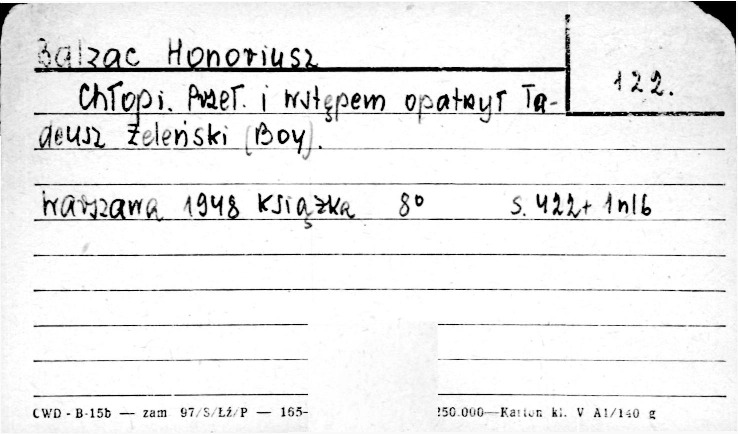 Balzac Honoriusz
122.
Chłopi. Przeł. i wstępem opatrzył Ta-
deusz Żeleński (Boy).
Warszawa 1948 Książka 8° s. 422+ 1nlb
CWD - B-15b — zam 97/S/Łź/P — 165-
250.000—Karton kl. V A1/140 g